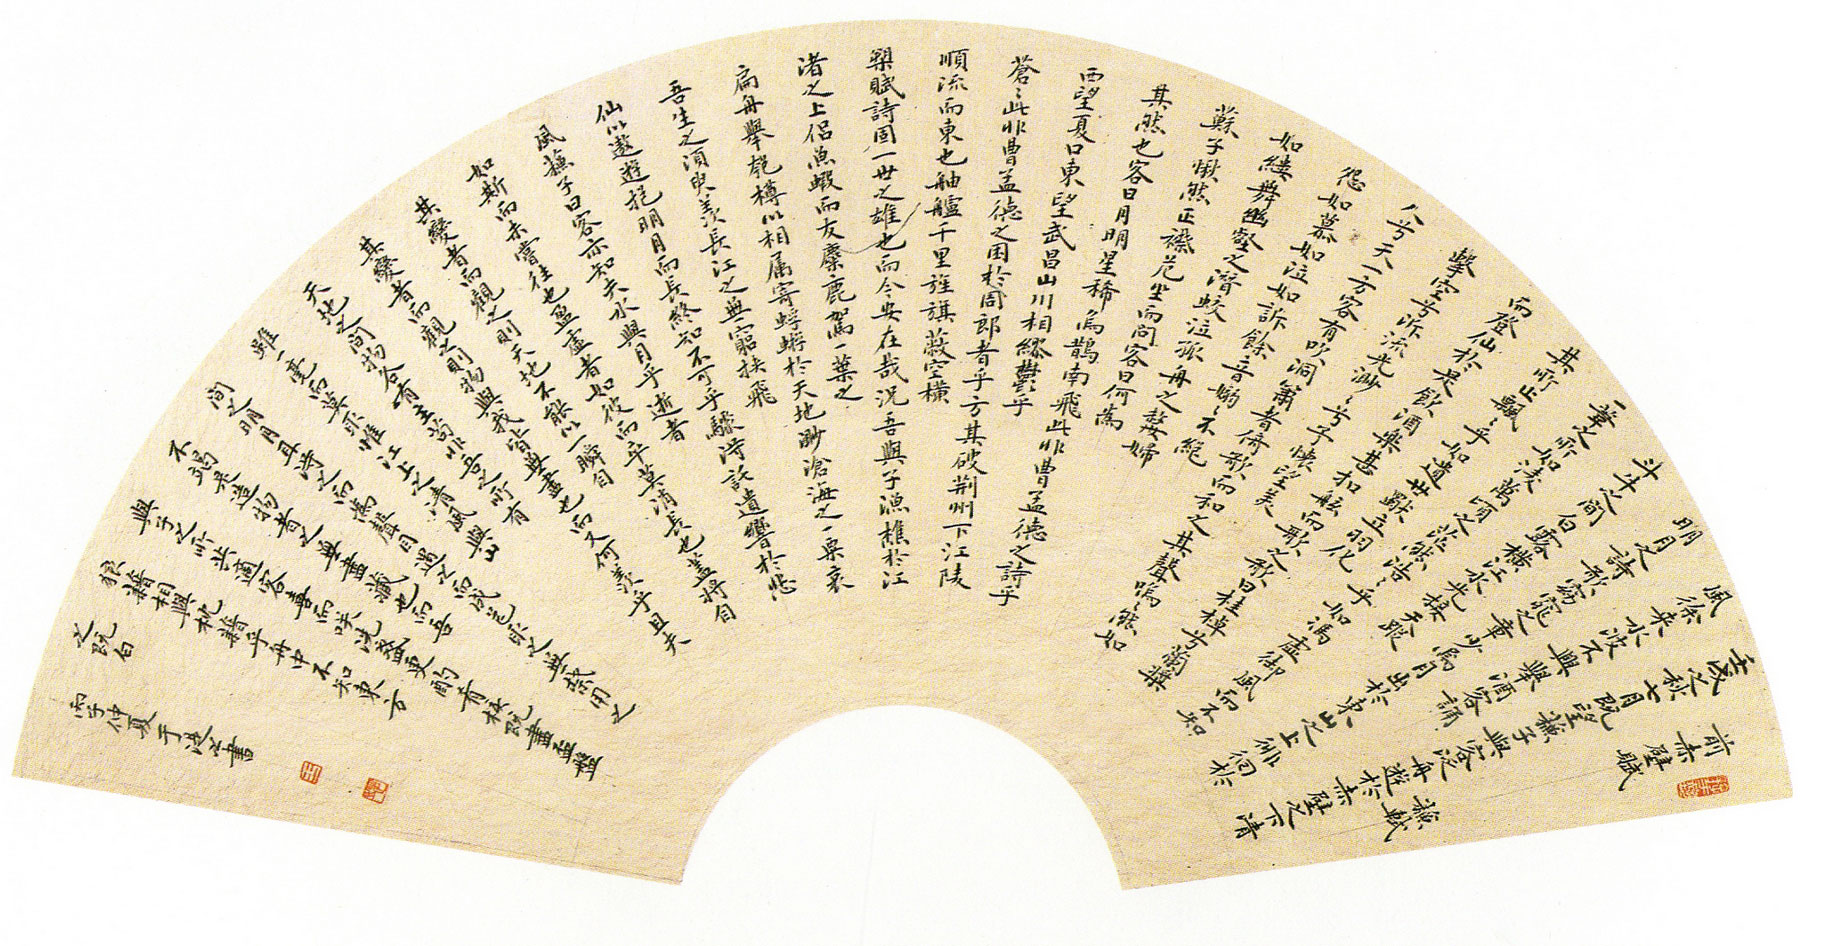 前赤壁賦 蘇軾
壬戌之秋七月既望蘇子與客泛舟遊於赤壁之下清
風徐來水波不興舉酒客誦
明月之詩歌窈窕之章少焉月出於東山之上徘徊於
斗牛之間白露橫江水光接天縱
一葦之所如凌萬頃之茫然浩ゝ乎如馮虛御風而不知
其所止飄ゝ乎如遺世獨立羽化
而登仙於是飲酒樂甚扣舷而歌之歌曰桂棹兮蘭槳
擊空兮泝流光渺ゝ兮予懷望美
人兮天一方客有吹洞簫者倚歌而和之其聲嗚ゝ然如
怨如慕如泣如訴餘音嫋ゝ不絕
如縷舞幽壑之潛蛟泣孤舟之嫠婦
蘇子愀然正襟危坐而問客曰何為
其然也客曰月明星稀烏鵲南飛此非曹孟德之詩乎
西望夏口東望武昌山川相繆鬱乎
蒼ゝ此非曹孟德之困於周郎者乎方其破荊州下江陵
順流而東也舳艫千里旌旗蔽空橫
槊賦詩固一世之雄也而今安在哉況吾與子漁樵於江
渚之上侶漁蝦而友麋鹿駕一葉之
扁舟舉匏樽以相属寄蜉蝣於天地渺滄海之一粟哀
吾生之須臾羨長江之無窮挾飛
仙以遨遊抱明月而長終知不可乎驟得託遺響於悲
風蘇子曰客亦知夫水與月乎逝者
如斯而未嘗往也盈虛者如彼而卒莫消長也蓋將自
其變者而觀之則天地不能以一瞬自
其變者而觀之則物與我皆無盡也而又何羨乎且夫
天地之間物各有主苟非吾之所有
雖一毫而莫取惟江上之清風與山
間之明月耳得之而為聲目遇之而成色取之無禁用之
不竭是造物者之無盡藏也而吾
與子之所共適客喜而咲洗盞更酌肴核既盡盃盤
狼藉相與枕藉乎舟中不知東方
之既白
丙子仲夏于書